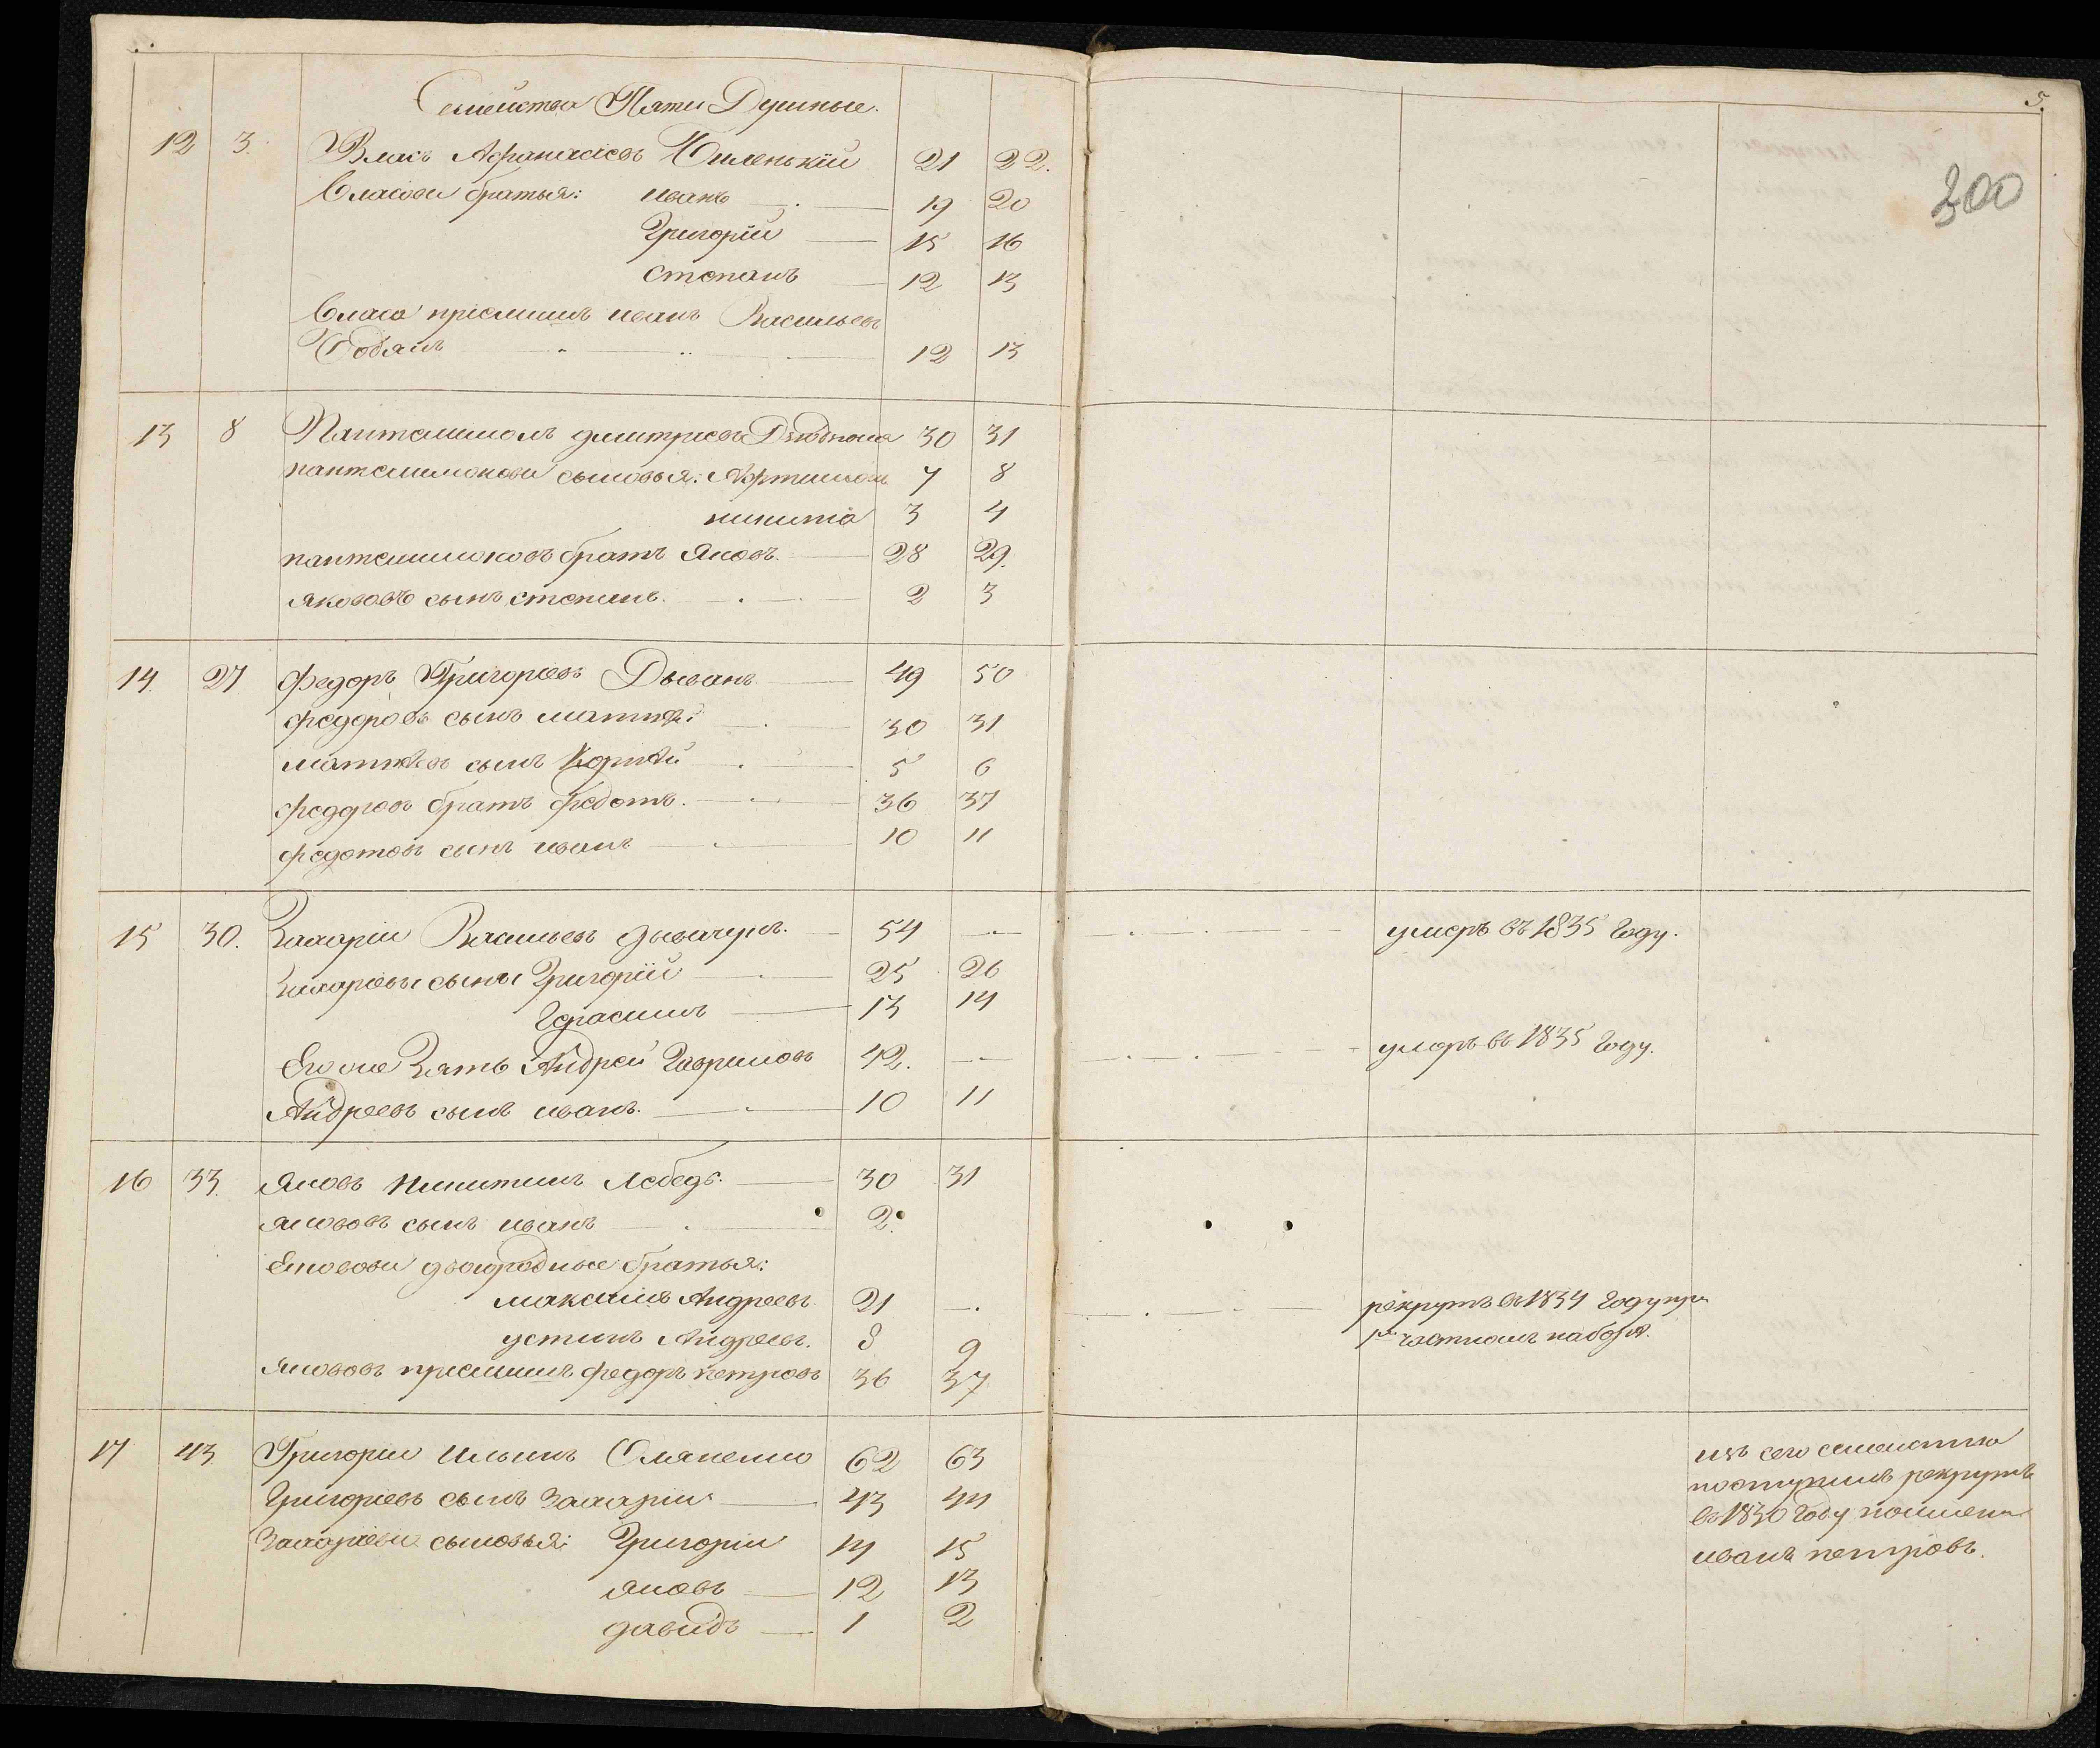 5.
300
Семейства Пяти Душные.
12 3. Власъ Афанасіевъ Биленькій 21 22.
Власови братья: иванъ 19 20
Григорій 15 16
степанъ 12 13
Власа пріемышъ иванъ Васильевъ
12 13
13 8 Пантелимонъ дмитріевъ 30 31
пантелимонови сыновья: Артимонъ 7 8
никита 3 4
пантелимоновъ братъ Яковъ. 28 29.
яковавъ сынъ степанъ. 2 3
14. 27 федоръ Григоріевъ Дыванъ 49 50
федоровъ сынъ матвѣй 30 31
матвѣевъ сынъ Корнѣй 5 6
федоровъ братъ федотъ. 36 37
федотовъ сынъ иванъ 10 11
15 30. Захарій Васильевъ 54 — умеръ въ 1835 Году.
Захаріевы сыны Григорій 25 26
Герасимъ 13 14
Его же Зять Андрей Гавриловъ 42. — умеръ въ 1835 Году.
Андреевъ сынъ иванъ. 10 11
16 33. Яковъ Никитинъ Лебедь. 30 31
яковавъ сынъ иванъ 2.
Якововы двоюродные братья:
максимъ Андреевъ. 21 — рекрутъ въ 1834 Году при
устинъ Андреевъ. 8 9 1м частномъ наборѣ.
якововъ пріемышъ федоръ петровъ 36 37
17 43 Григорій Ильинъ 62 63 изъ сего семейства
Григоріевъ сынъ Захарій 43 44 поступилъ рекрутъ
Захаріеви сыновья: Григорій 14 15 въ 1830 Году
яковъ 12 13 иванъ петровъ.
давидъ 1 2